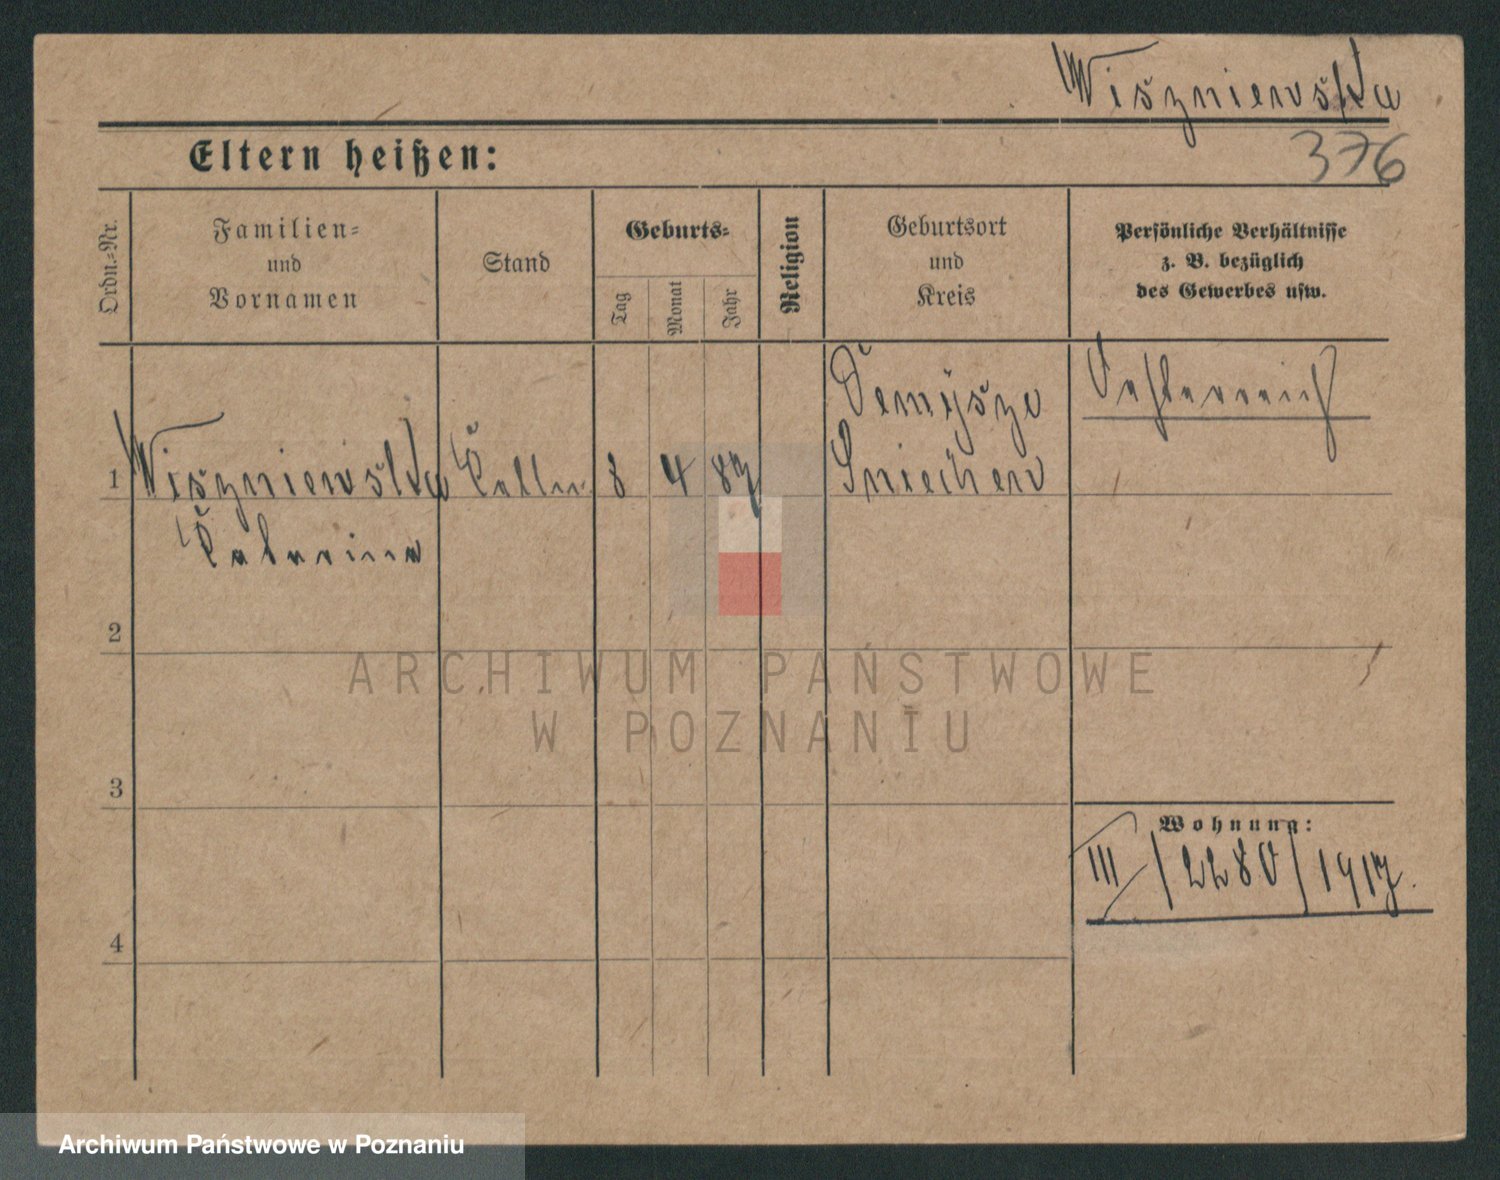 Wiszniewska
376
Eltern heißen:
Ordn.-Nr.
Familien- und Vornamen
Stand
Geburts-
Tag
Monat
Jahr
Religion
Geburtsort und Kreis
Persönliche Verhältnisse
z. B. bezüglich
des Gewerbes usw.
1
Wiszniewska
8
4
87
Sniechen
Oesterreich
2
3
4
Wohnung:
III/2280/1917.
ARCHIWUM PAŃSTWOWE
W POZNANIU
Archiwum Państwowe w Poznaniu